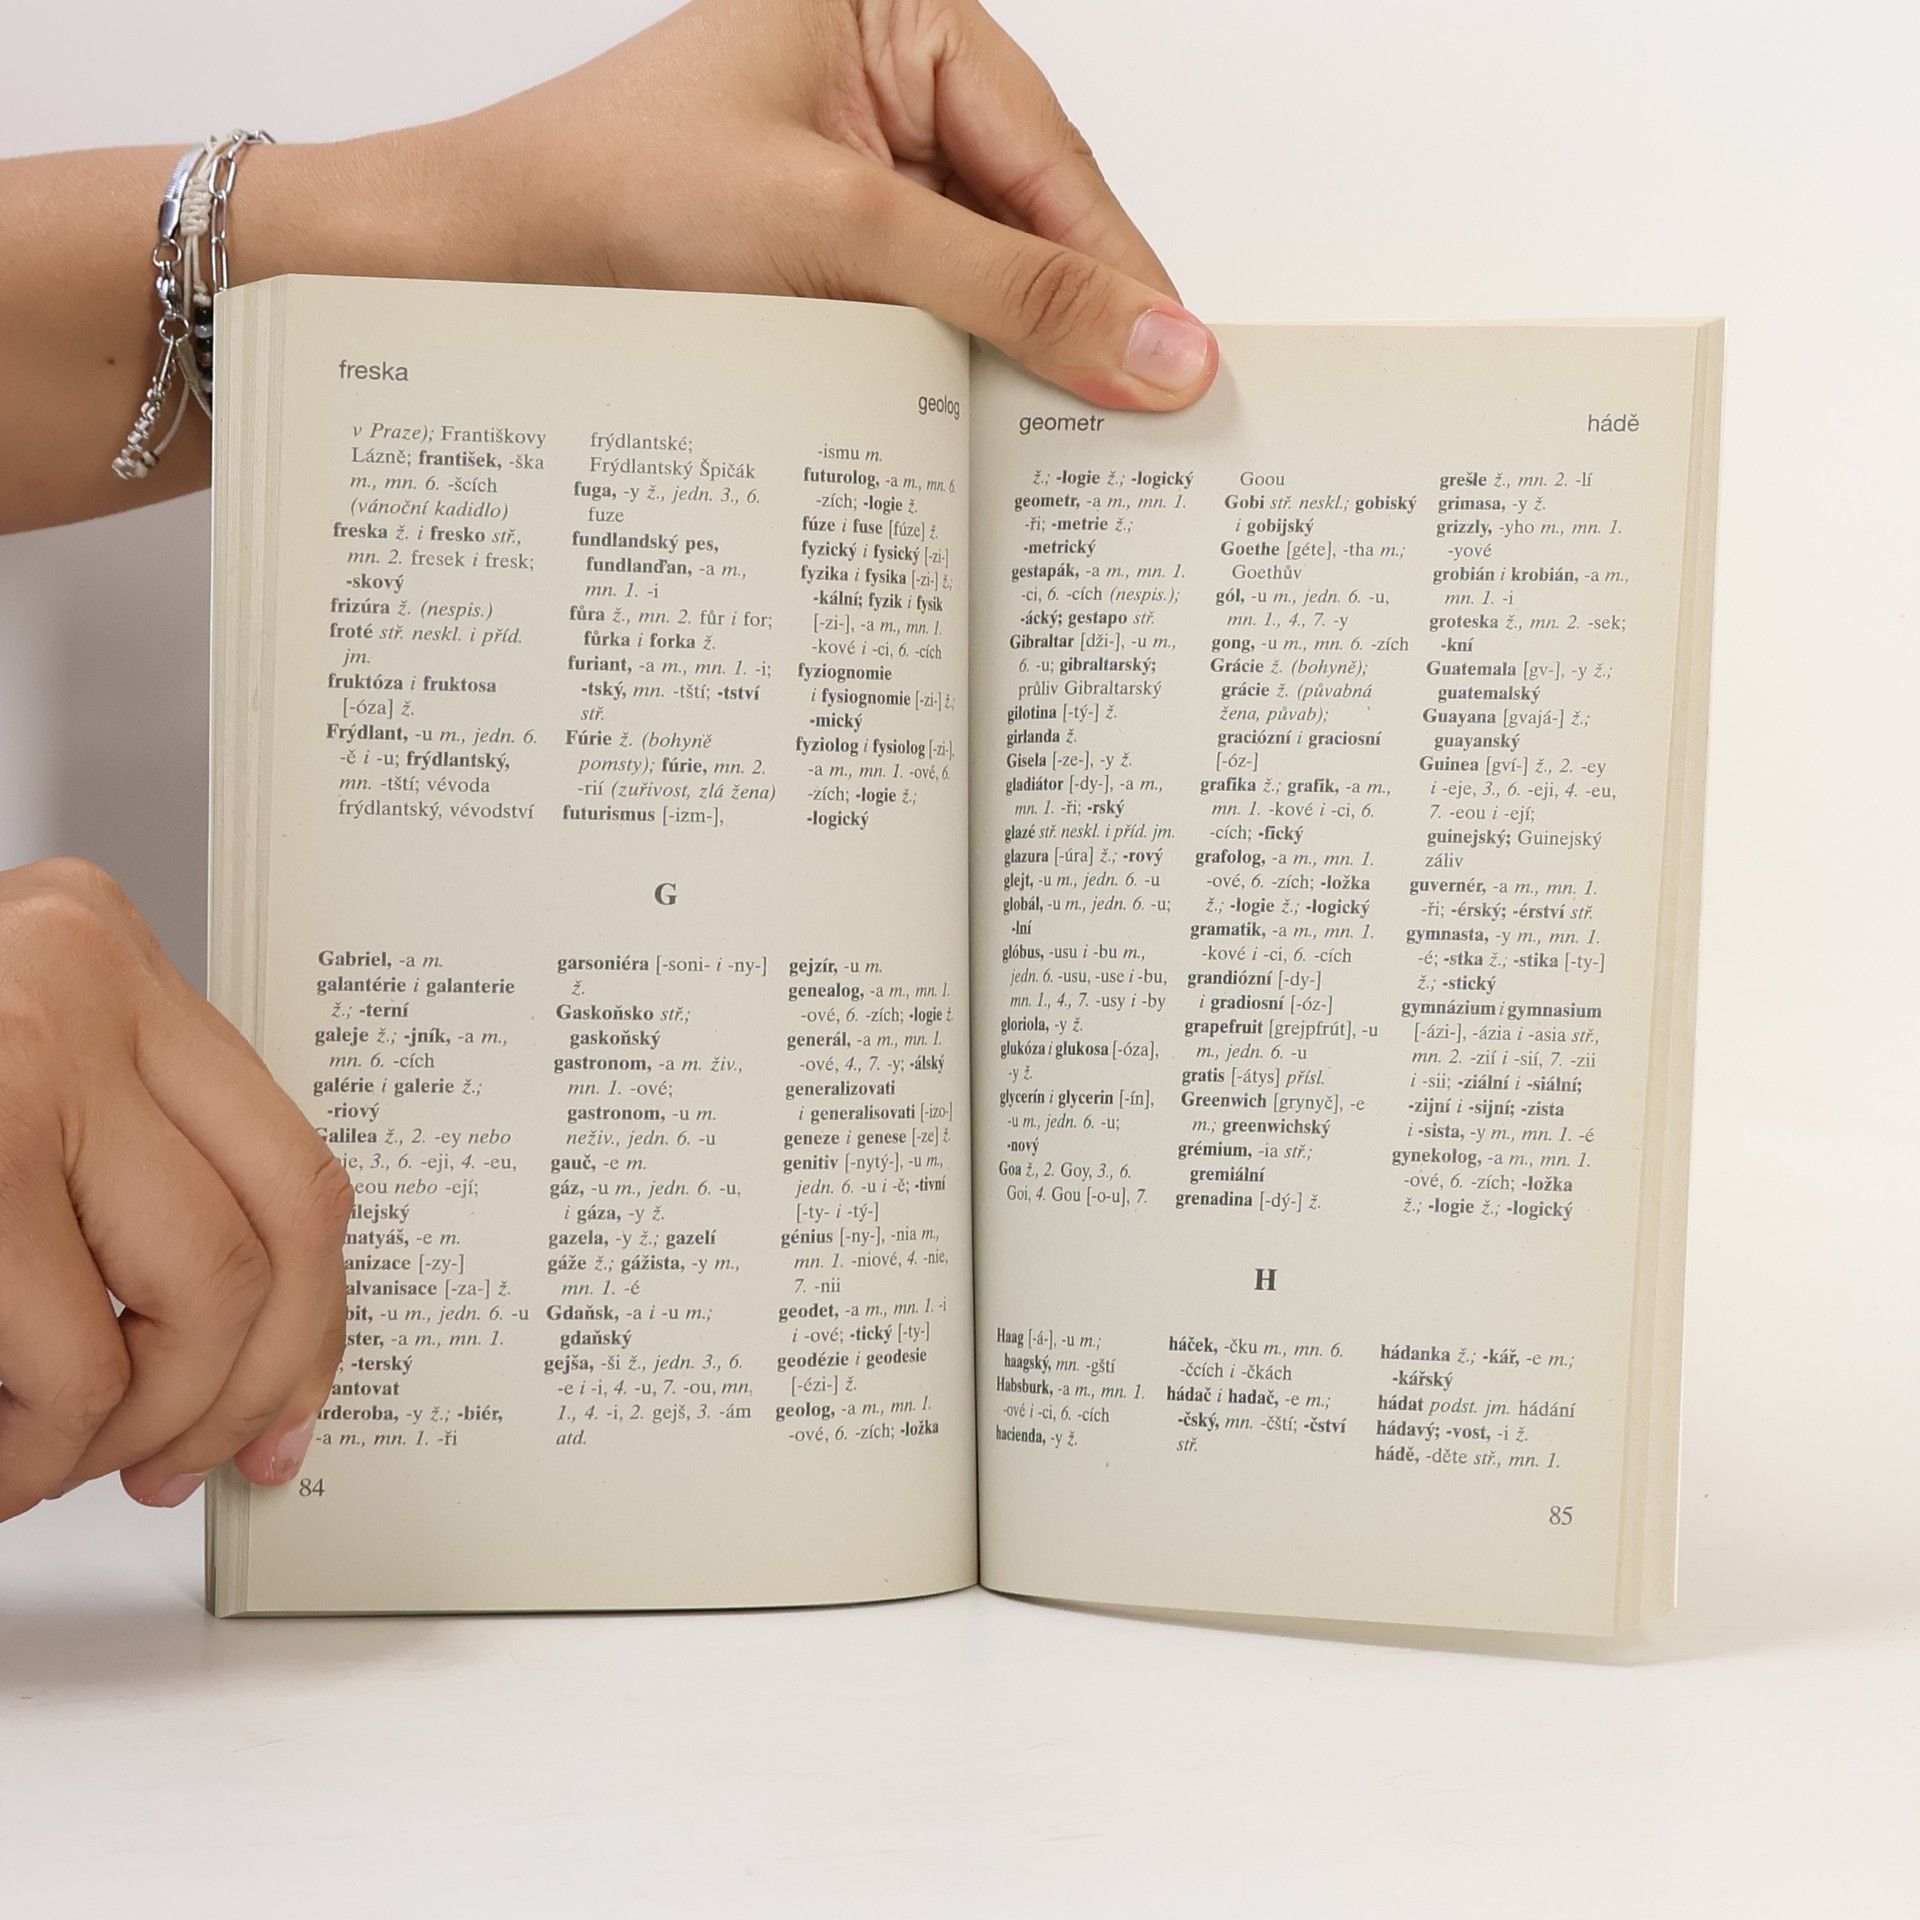 freska
geolog
v Praze); Františkovy
Lázně; františek, -ška
m., mn. 6. -šcích
(vánoční kadidlo)
freska ž. i fresko stř.,
mn. 2. fresek i fresk;
-skový
frizúra ž. (nespis.)
froté stř. neskl. i příd.
jm.
fruktóza i fruktosa
[-óza] ž.
Frýdlant, -u m., jedn. 6.
-ě i -u; frýdlantský,
mn. -tští; vévoda
frýdlantský, vévodství
frýdlantské;
Frýdlantský Špičák
fuga, -y ž., jedn. 3., 6.
fuze
fundlandský pes,
fundlanďan, -a m.,
mn. 1. -i
fůra ž., mn. 2. fůr i for;
fůrka i forka ž.
furiant, -a m., mn. 1. -i;
-tský, mn. -tští; -tství
stř.
Fúrie ž. (bohyně
pomsty); fúrie, mn. 2.
-rií (zuřivost, zlá žena)
futurismus [-izm-],
-ismu m.
futurolog, -a m., mn. 6.
-zích; -logie ž.
fúze i fuse [fúze] ž.
fyzický i fysický [-zi-]
fyzika i fysika [-zi-] ž.;
-kální; fyzik i fysik
[-zi-], -a m., mn. 1.
-kové i -ci, 6. -cích
fyziognomie
i fysiognomie [-zi-] ž.;
-mický
fyziolog i fysiolog [-zi-],
-a m., mn. 1. -ové, 6.
-zích; -logie ž.;
-logický
G
Gabriel, -a m.
galantérie i galanterie
ž.; -terní
galeje ž.; -jník, -a m.,
mn. 6. -cích
galérie i galerie ž.;
-riový
Galilea ž., 2. -ey nebo
-eje, 3., 6. -eji, 4. -eu,
-eou nebo -ejí;
ilejský
matyáš, -e m.
anizace [-zy-]
alvanisace [-za-] ž.
bit, -u m., jedn. 6. -u
ster, -a m., mn. 1.
-terský
antovat
rderoba, -y ž.; -biér,
-a m., mn. 1. -ři
garsoniéra [-soni- i -ny-]
ž.
Gaskoňsko stř.;
gaskoňský
gastronom, -a m. živ.,
mn. 1. -ové;
gastronom, -u m.
neživ., jedn. 6. -u
gauč, -e m.
gáz, -u m., jedn. 6. -u,
i gáza, -y ž.
gazela, -y ž.; gazelí
gáže ž.; gážista, -y m.,
mn. 1. -é
Gdaňsk, -a i -u m.;
gdaňský
gejša, -ši ž., jedn. 3., 6.
-e i -i, 4. -u, 7. -ou, mn,
1., 4. -i, 2. gejš, 3. -ám
atd.
gejzír, -u m.
genealog, -a m., mn. 1.
-ové, 6. -zích; -logie ž.
generál, -a m., mn. 1.
-ové, 4., 7. -y; -álský
generalizovati
i generalisovati [-izo-]
geneze i genese [-ze] ž.
genitiv [-nytý-], -u m.,
jedn. 6. -u i -ě; -tivní
[-ty- i -tý-]
génius [-ny-], -nia m.,
mn. 1. -niové, 4. -nie,
7. -nii
geodet, -a m., mn. 1. -i
i -ové; -tický [-ty-]
geodézie i geodesie
[-ézi-] ž.
geolog, -a m., mn. 1.
-ové, 6. -zích; -ložka
84
geometr
hádě
ž.; -logie ž.; -logický
geometr, -a m., mn. 1.
-ři; -metrie ž.;
-metrický
gestapák, -a m., mn. 1.
-ci, 6. -cích (nespis.);
-ácký; gestapo stř.
Gibraltar [dži-], -u m.,
6. -u; gibraltarský;
průliv Gibraltarský
gilotina [-tý-] ž.
girlanda ž.
Gisela [-ze-], -y ž.
gladiátor [-dy-], -a m.,
mn. 1. -ři; -rský
glazé stř. neskl. i příd. jm.
glazura [-úra] ž.; -rový
glejt, -u m., jedn. 6. -u
globál, -u m., jedn. 6. -u;
-lní
glóbus, -usu i -bu m.,
jedn. 6. -usu, -use i -bu,
mn. 1., 4., 7. -usy i -by
gloriola, -y ž.
glukóza i glukosa [-óza],
-y ž.
glycerín i glycerin [-ín],
-u m., jedn. 6. -u;
-nový
Goa ž., 2. Goy, 3., 6.
Goi, 4. Gou [-o-u], 7.
Goou
Gobi stř. neskl.; gobiský
i gobijský
Goethe [géte], -tha m.;
Goethův
gól, -u m., jedn. 6. -u,
mn. 1., 4., 7. -y
gong, -u m., mn. 6. -zích
Grácie ž. (bohyně);
grácie ž. (půvabná
žena, půvab);
graciózní i graciosní
[-óz-]
grafika ž.; grafik, -a m.,
mn. 1. -kové i -ci, 6.
-cích; -fický
grafolog, -a m., mn. 1.
-ové, 6. -zích; -ložka
ž.; -logie ž.; -logický
gramatik, -a m., mn. 1.
-kové i -ci, 6. -cích
grandiózní [-dy-]
i gradiosní [-óz-]
grapefruit [grejpfrút], -u
m., jedn. 6. -u
gratis [-átys] přísl.
Greenwich [grynyč], -e
m.; greenwichský
grémium, -ia stř.;
gremiální
grenadina [-dý-] ž.
grešle ž., mn. 2. -lí
grimasa, -y ž.
grizzly, -yho m., mn. 1.
-yové
grobián i krobián, -a m.,
mn. 1. -i
groteska ž., mn. 2. -sek;
-kní
Guatemala [gv-], -y ž.;
guatemalský
Guayana [gvajá-] ž.;
guayanský
Guinea [gví-] ž., 2. -ey
i -eje, 3., 6. -eji, 4. -eu,
7. -eou i -ejí;
guinejský; Guinejský
záliv
guvernér, -a m., mn. 1.
-ři; -érský; -érství stř.
gymnasta, -y m., mn. 1.
-é; -stka ž.; -stika [-ty-]
ž.; -stický
gymnázium i gymnasium
[-ázi-], -ázia i -asia stř.,
mn. 2. -zií i -sií, 7. -zii
i -sii; -ziální i -siální;
-zijní i -sijní; -zista
i -sista, -y m., mn. 1. -é
gynekolog, -a m., mn. 1.
-ové, 6. -zích; -ložka
ž.; -logie ž.; -logický
H
Haag [-á-], -u m.;
haagský, mn. -gští
Habsburk, -a m., mn. 1.
-ové i -ci, 6. -cích
hacienda, -y ž.
háček, -čku m., mn. 6.
-čcích i -čkách
hádač i hadač, -e m.;
-čský, mn. -čští; -čství
stř.
hádanka ž.; -kář, -e m.;
-kářský
hádat podst. jm. hádání
hádavý; -vost, -i ž.
hádě, -děte stř., mn. 1.
85